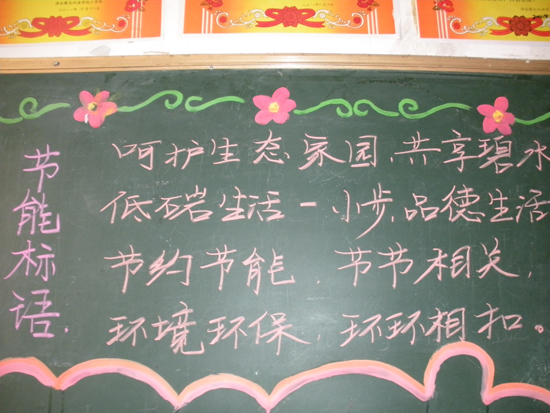 节能标语.
呵护生态家园,共享碧水
低碳生活一小步,品德生活
节约节能,节节相关,
环境环保,环环相扣。